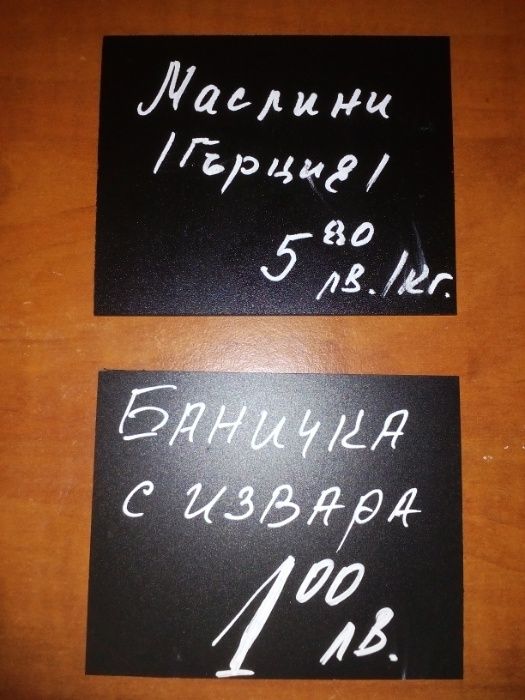 Маслини
/Гърция/
5 80 лв./кг.
БАНИЧКА
С ИЗВАРА
1 00 лв.